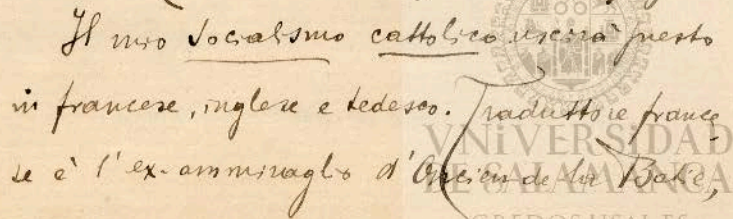 Il mio Socialismo cattolico uscirà presto
in francese, inglese e tedesco. Traduttore france-
se è l'ex-ammiraglio d'Orcien de la Batie,
VNiVERSIDAD
DE SALAMANCA
GREDOS.USAL.ES